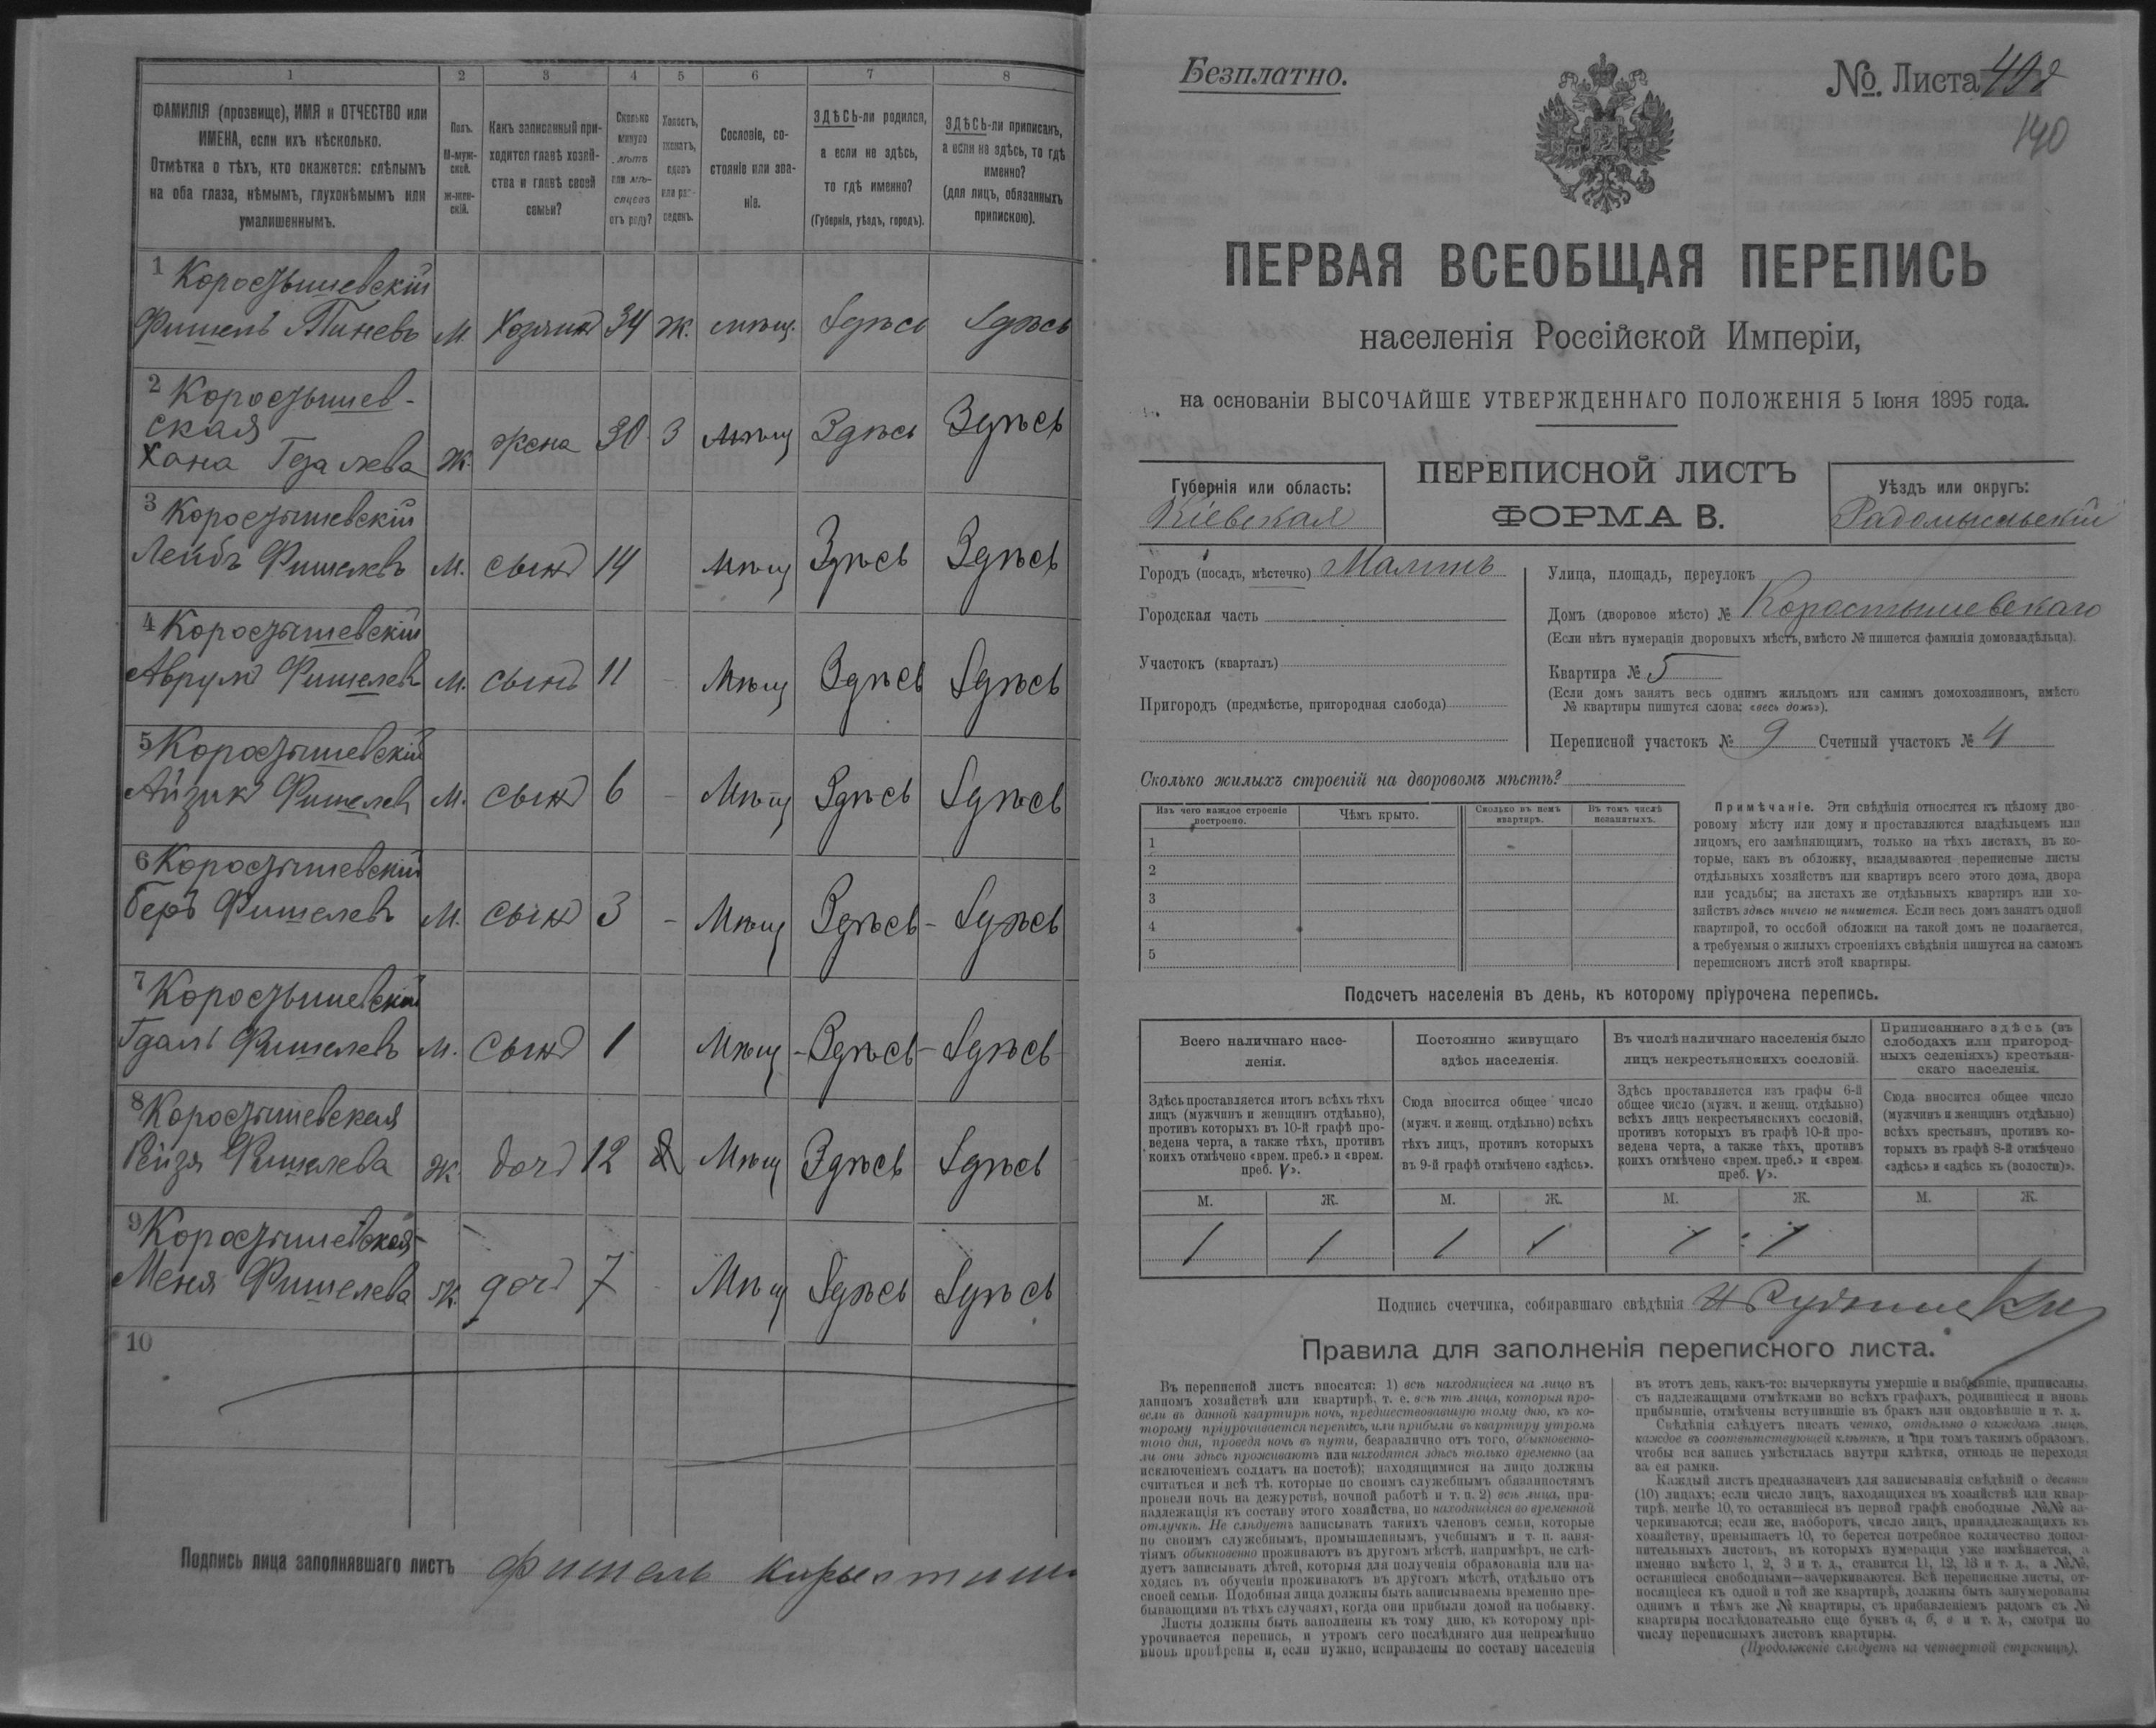 1 2 3 4 5 6 7 8
ФАМИЛІЯ (прозвище), ИМЯ и ОТЧЕСТВО или
ИМЕНА, если ихъ нѣсколько.
Отмѣтка о тѣхъ, кто окажется: слѣпымъ
на оба глаза, нѣмымъ, глухонѣмымъ или
умалишеннымъ.
Полъ.
М-муж-
ской.
Ж-жен-
скій.
Какъ записанный при-
ходится главѣ хозяй-
ства и главѣ своей
семьи?
Сколько
минуло
лѣтъ
или мѣ-
сяцевъ
отъ роду?
Холостъ,
женатъ,
вдовъ
или раз-
веденъ.
Сословіе, со-
стояніе или зва-
ніе.
ЗДѢСЬ-ли родился,
а если не здѣсь,
то гдѣ именно?
(Губернія, уѣздъ, городъ).
ЗДѢСЬ-ли приписанъ,
а если не здѣсь, то гдѣ
именно?
(для лицъ, обязанныхъ
припискою).
1 Коростышевскій
Фишель Пиневъ М. Хозяинъ 34 Ж. мѣщ. Здѣсь Здѣсь
2 Коростышев-
ская
Хана Гдалева Ж. жена 30 З мѣщ Здѣсь Здѣсь
3 Коростышевскій
Лейбъ Фишелевъ М. сынъ 14 Мѣщ Здѣсь Здѣсь
4 Коростышевскій
Аврумъ Фишелев М. сынъ 11 - Мѣщ Здѣсь Здѣсь
5 Коростышевскій
Айзикъ Фишелев М. сынъ 6 - Мѣщ Здѣсь Здѣсь
6 Коростышевскій
Беръ Фишелевъ М. сынъ 3 - Мѣщ Здѣсь - Здѣсь
7 Коростышевскій
Гдаль Фишелевъ М. сынъ 1 Мѣщ - Здѣсь - Здѣсь -
8 Коростышевская
Рейзя Фишелева Ж. дочь 12 Мѣщ Здѣсь Здѣсь
9 Коростышевская
Меня Фишелева Ж. дочь 7 - Мѣщ Здѣсь Здѣсь
10
Подпись лица заполнявшаго листъ Фишель
Безплатно.
№. Листа
140
ПЕРВАЯ ВСЕОБЩАЯ ПЕРЕПИСЬ
населенія Россійской Имперіи,
на основаніи ВЫСОЧАЙШЕ УТВЕРЖДЕННАГО ПОЛОЖЕНІЯ 5 Іюня 1895 года.
Губернія или область:
Кіевская
ПЕРЕПИСНОЙ ЛИСТЪ
ФОРМА В.
Уѣздъ или округъ:
Радомысльскій
Городъ (посадъ, мѣстечко) Малинъ
Городская часть
Участокъ (кварталъ)
Пригородъ (предмѣстье, пригородная слобода)
Улица, площадь, переулокъ
Домъ (дворовое мѣсто) № Коростышевскаго
(Если нѣтъ нумераціи дворовыхъ мѣстъ, вмѣсто № пишется фамилія домовладѣльца).
Квартира № 5
(Если домъ занятъ весь однимъ жильцомъ или самимъ домохозяиномъ, вмѣсто
№ квартиры пишутся слова: «весь домъ»).
Переписной участокъ № 9 Счетный участокъ № 4
Сколько жилыхъ строеній на дворовомъ мѣстѣ?
Изъ чего каждое строеніе
построено.
Чѣмъ крыто.
Сколько въ немъ
квартиръ.
Въ томъ числѣ
незанятыхъ.
1
2
3
4
5
Примѣчаніе. Эти свѣдѣнія относятся къ цѣлому дво-
ровому мѣсту или дому и проставляются владѣльцемъ или
лицомъ, его замѣняющимъ, только на тѣхъ листахъ, въ ко-
торые, какъ въ обложку, вкладываются переписные листы
отдѣльныхъ хозяйствъ или квартиръ всего этого дома, двора
или усадьбы; на листахъ же отдѣльныхъ квартиръ или хо-
зяйствъ здѣсь ничего не пишется. Если весь домъ занятъ одной
квартирой, то особой обложки на такой домъ не полагается,
а требуемыя о жилыхъ строеніяхъ свѣдѣнія пишутся на самомъ
переписномъ листѣ этой квартиры.
Подсчетъ населенія въ день, къ которому пріурочена перепись.
Всего наличнаго насе-
ленія.
Постоянно живущаго
здѣсь населенія.
Въ числѣ наличнаго населенія было
лицъ некрестьянскихъ сословій.
Приписаннаго здѣсь (въ
слободахъ или пригород-
ныхъ селеніяхъ) крестьян-
скаго населенія.
Здѣсь проставляется итогъ всѣхъ тѣхъ
лицъ (мужчинъ и женщинъ отдѣльно),
противъ которыхъ въ 10-й графѣ про-
ведена черта, а также тѣхъ, противъ
коихъ отмѣчено «врем. преб.» и «врем.
преб. V».
Сюда вносится общее число
(мужч. и женщ. отдѣльно) всѣхъ
тѣхъ лицъ, противъ которыхъ
въ 9-й графѣ отмѣчено «здѣсь».
Здѣсь проставляется изъ графы 6-й
общее число (мужч. и женщ. отдѣльно)
всѣхъ лицъ некрестьянскихъ сословій,
противъ которыхъ въ графѣ 10-й про-
ведена черта, а также тѣхъ, противъ
коихъ отмѣчено «врем. преб.» и «врем.
преб. V».
Сюда вносится общее число
(мужчинъ и женщинъ отдѣльно)
всѣхъ крестьянъ, противъ ко-
торыхъ въ графѣ 8-й отмѣчено
«здѣсь» и «здѣсь къ (волости)».
М. Ж. М. Ж. М. Ж. М. Ж.
Подпись счетчика, собиравшаго свѣдѣнія
Правила для заполненія переписного листа.
Въ переписной листъ вносятся: 1) всѣ находящіеся на лицо въ
данномъ хозяйствѣ или квартирѣ, т. е. всѣ тѣ лица, которыя про-
вели въ данной квартирѣ ночь, предшествовавшую тому дню, къ ко-
торому пріурочивается перепись, или прибыли въ квартиру утромъ
того дня, проведя ночь въ пути, безразлично отъ того, обыкновенно-
ли они здѣсь проживаютъ или находятся здѣсь только временно (за
исключеніемъ солдатъ на постоѣ); находящимися на лицо должны
считаться и всѣ тѣ, которые по своимъ служебнымъ обязанностямъ
провели ночь на дежурствѣ, ночной работѣ и т. п. 2) всѣ лица, при-
надлежащія къ составу этого хозяйства, но находящіяся во временной
отлучкѣ. Не слѣдуетъ записывать такихъ членовъ семьи, которые
по своимъ служебнымъ, промышленнымъ, учебнымъ и т. п. заня-
тіямъ обыкновенно проживаютъ въ другомъ мѣстѣ, напримѣръ, не слѣ-
дуетъ записывать дѣтей, которыя для полученія образованія или на-
ходясь въ обученіи проживаютъ въ другомъ мѣстѣ, отдѣльно отъ
своей семьи. Подобныя лица должны быть записываемы временно пре-
бывающими въ тѣхъ случаяхъ, когда они прибыли домой на побывку.
Листы должны быть заполнены къ тому дню, къ которому прі-
урочивается перепись, и утромъ сего послѣдняго дня непремѣнно
вновь провѣрены и, если нужно, исправлены по составу населенія
въ этотъ день, какъ-то: вычеркнуты умершіе и выбывшіе, приписаны,
съ надлежащими отмѣтками во всѣхъ графахъ, родившіеся и вновь
прибывшіе, отмѣчены вступившіе въ бракъ или овдовѣвшіе и т. д.
Свѣдѣнія слѣдуетъ писать четко, отдѣльно о каждомъ лицѣ,
каждое въ соотвѣтствующей клѣткѣ, и при томъ такимъ образомъ,
чтобы вся запись умѣстилась внутри клѣтки, отнюдь не переходя
за ея рамки.
Каждый листъ предназначенъ для записыванія свѣдѣній о десяти
(10) лицахъ; если число лицъ, находящихся въ хозяйствѣ или квар-
тирѣ, менѣе 10, то оставшіеся въ первой графѣ свободные №№ за-
черкиваются; если же, наоборотъ, число лицъ, принадлежащихъ къ
хозяйству, превышаетъ 10, то берется потребное количество допол-
нительныхъ листовъ, въ которыхъ нумерація уже измѣняется, а
именно вмѣсто 1, 2, 3 и т. д., ставится 11, 12, 13 и т. д., а №№,
оставшіеся свободными—зачеркиваются. Всѣ переписные листы, от-
носящіеся къ одной и той же квартирѣ, должны быть занумерованы
однимъ и тѣмъ же № квартиры, съ прибавленіемъ рядомъ съ №
квартиры послѣдовательно еще буквъ а, б, в и т. д., смотря по
числу переписныхъ листовъ квартиры.
(Продолженіе слѣдуетъ на четвертой страницѣ).